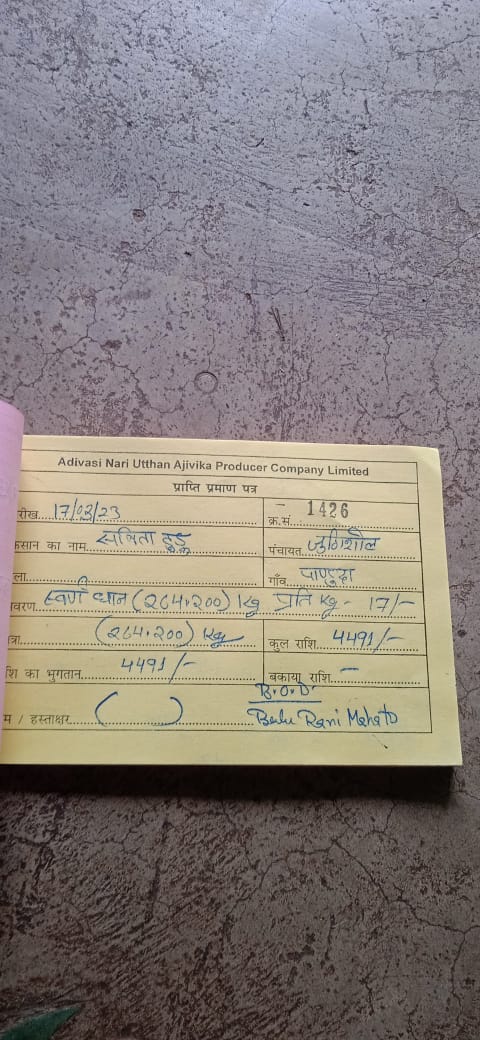 Adivasi Nari Utthan Ajivika Producer Company Limited
प्राप्ति प्रमाण पत्र
रीख. 17/02/23 क्र.सं. 1426
कसान का नाम. सविता टुडू पंचायत. जुगिशोल
ला गाँव. पाण्डुदा
वरण. स्वर्ण धान (264.200) kg प्रति kg - 17/-
त्रा. (264.200) kg कुल राशि. 4491/-
शि का भुगतान. 4491/- बकाया राशि. -
म / हस्ताक्षर. ( ) B.O.D. Rani Mahato